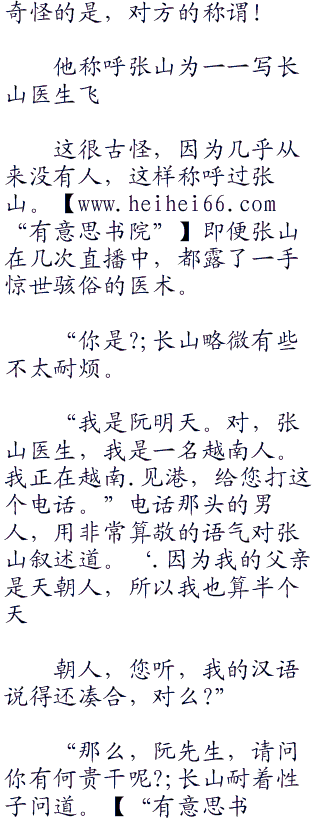 奇怪的是，对方的称谓！
他称呼张山为一一写长
山医生飞
这很古怪，因为几乎从
来没有人，这样称呼过张
山。【www.heihei66.com
“有意思书院”】即便张山
在几次直播中，都露了一手
惊世骇俗的医术。
“你是?;长山略微有些
不太耐烦。
“我是阮明天。对，张
山医生，我是一名越南人。
我正在越南.见港，给您打这
个电话。”电话那头的男
人，用非常算敬的语气对张
山叙述道。‘.因为我的父亲
是天朝人，所以我也算半个
天
朝人，您听，我的汉语
说得还凑合，对么?”
“那么，阮先生，请问
你有何贵干呢?;长山耐着性
子问道。【“有意思书